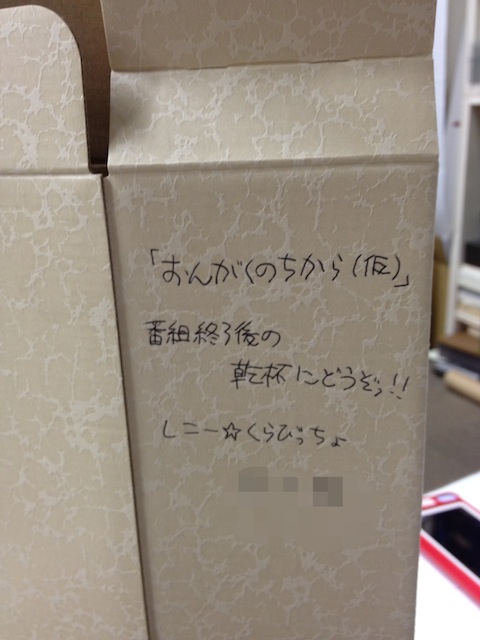 「おんがくのちから(仮)」
番組終了後の
乾杯にどうぞっ!!
レニー☆くらびっちょ